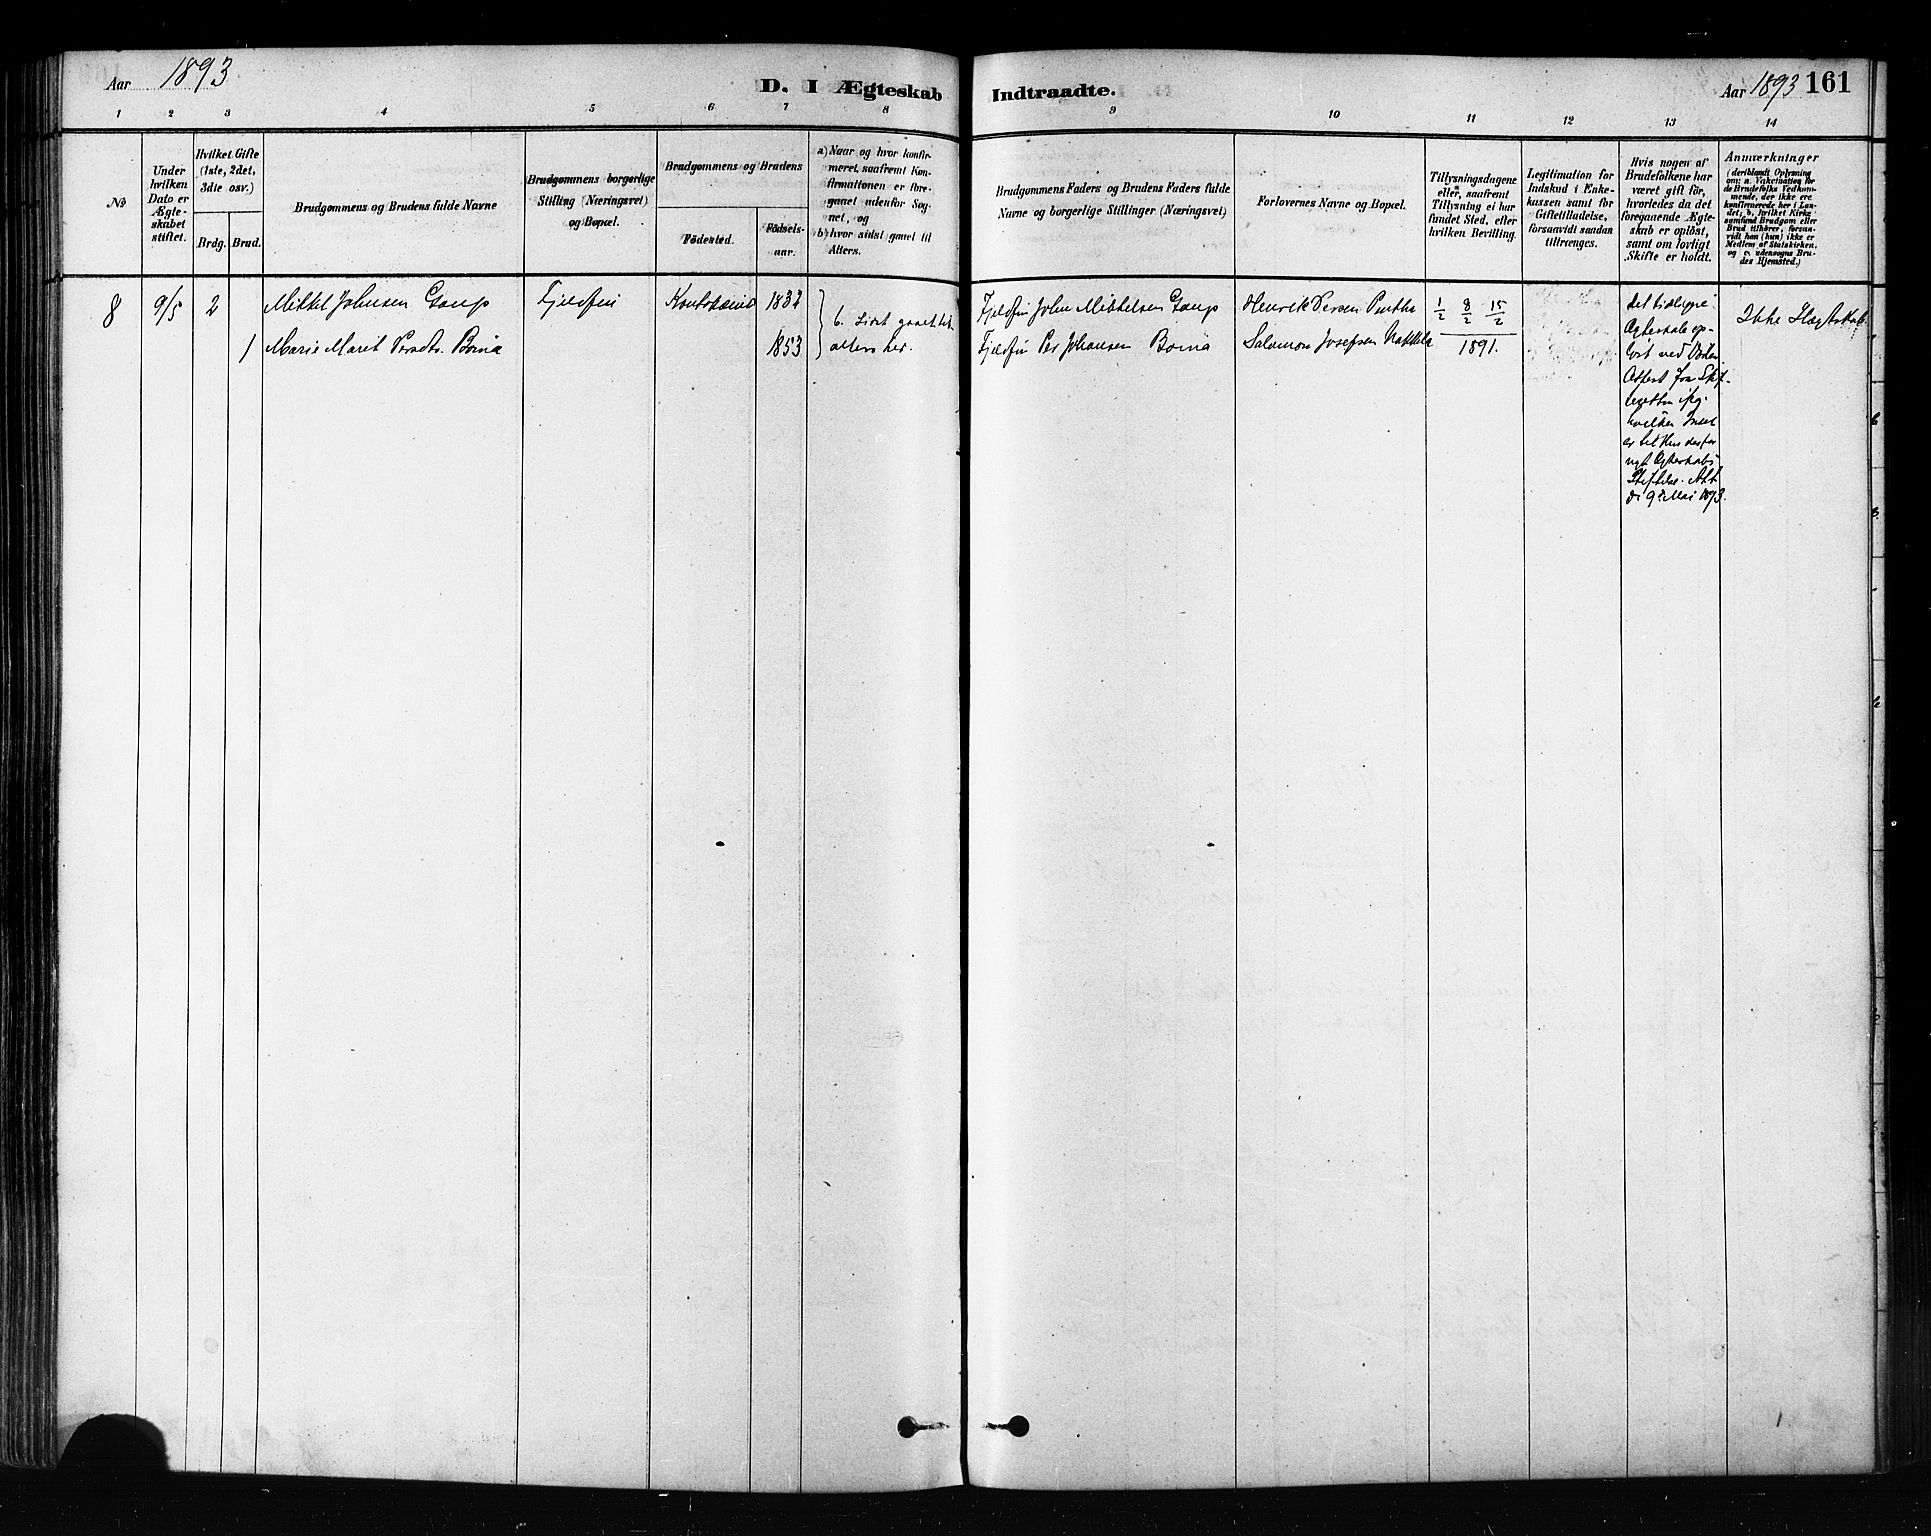 Aar 1893
D. I Ægteskab Indtraadte.
Aar 1893 161
1 2 3 4 5 6 7 8 9 10 11 12 13 14
No
Under
hvilken
Dato er
Ægte-
skabet
stiftet.
Hvilket Gifte
(1ste, 2det,
3die osv.)
Brdg. Brud.
Brudgommens og Brudens fulde Navne
Brudgommens borgerlige
Stilling (Næringsvei)
og Bopæl.
Brudgommens og Brudens
Födested.
Födsels-
aar.
a) Naar og hvor konfir-
meret, saafremt Kon-
firmationen er fore-
gaaet udenfor Sog-
net, og
b) hvor sidst gaaet til
Alters.
Brudgommens Faders og Brudens Faders fulde
Navne og borgerlige Stillinger (Næringsvei)
Forlovernes Navne og Bopæl.
Tillysningsdagene
eller, saafremt
Tillysning ei har
fundet Sted, efter
hvilken Bevilling.
Legitimation for
Indskud i Enke-
kassen samt for
Giftetilladelse,
forsaavidt saadan
tiltrænges.
Hvis nogen af
Brudefolkene har
været gift för,
hvorledes da det
foregaaende Ægte-
skab er oplöst,
samt om lovligt
Skifte er holdt.
Anmærkninger
(deriblandt Oplysning
om: a. Vakcination for
de Brudefolks Vedkom-
mende, der ikke ere
konfirmerede her i Lan-
det; b. hvilket Kirke-
samfund Brudgom eller
Brud tilhörer, forsaa-
vidt han (hun) ikke er
Medlem af Statskirken,
og c. udensogns Bru-
des Hjemsted.)
8 9/5 2 Mikkel Johnsen Gaup Fjeldfin Kautokeino 1832
1 Marie Maret Persdtr. Bonia 1853
b. Sidst gaaet til
alters her.
Fjeldfin John Mikkelsen Gaup
Fjeldfin Per Johansen Bonia
Henrik Persen
Salamon Josefsen Nakkela
1/2 8/2 15/2
1891.
Det tidligere
Ægteskab op-
löst ved
Attest fra Skif-
hvilken Intet
er til Hinder for
nyt Ægteskabs
Stiftelse.
d: 9de Mai 1893.
Ikke Slægtskab.